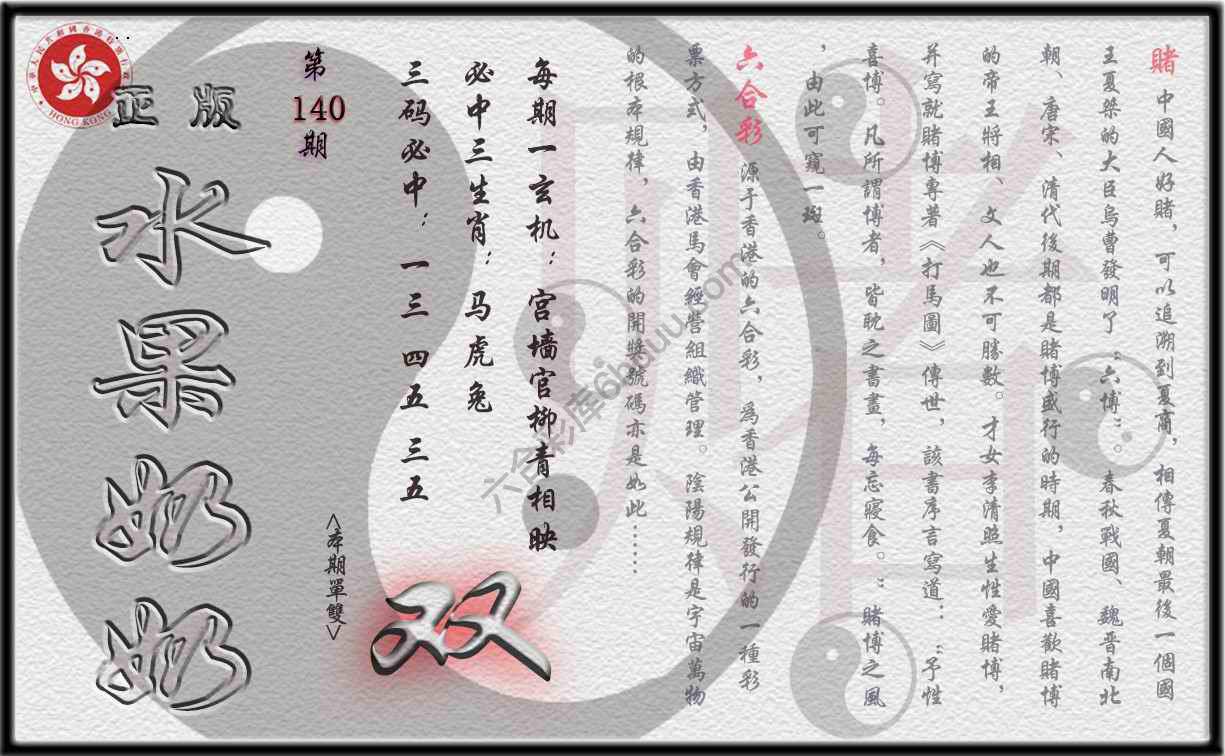 賭 中國人好賭，可以追溯到夏商，相傳夏朝最後一個國
王夏桀的大臣烏曹發明了“六博”。春秋戰國、魏晋南北
朝、唐宋、清代後期都是賭博盛行的時期，中國喜歡賭博
的帝王將相、文人也不可勝數。才女李清照生性愛賭博，
并寫就賭博專著《打馬圖》傳世，該書序言寫道：“予性
喜博。凡所謂博者，皆耽之書畫，每忘寢食。”賭博之風
，由此可窺一斑。
六合彩 源于香港的六合彩，為香港公開發行的一種彩
票方式，由香港馬會經營組織管理。陰陽規律是宇宙萬物
的根本規律，六合彩的開獎號碼亦是如此……
每期一玄机：宫墙官柳青相映
必中三生肖：马虎兔
三码必中：一三 四五 三五
双
<本期單雙>
第
140
期
正版
水果奶奶
HONG KONG
中華人民共和國香港特別行政區
六合彩库6hduuu.com
賭